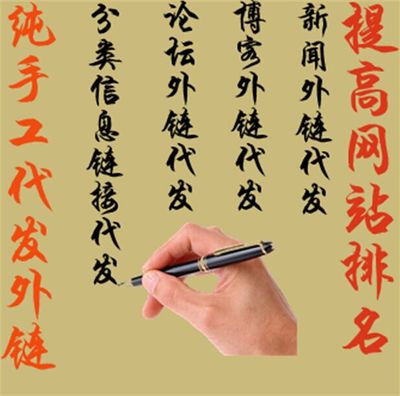 提高网站排名
新闻外链代发
博客外链代发
论坛外链代发
分类信息链接代发
纯手工代发外链